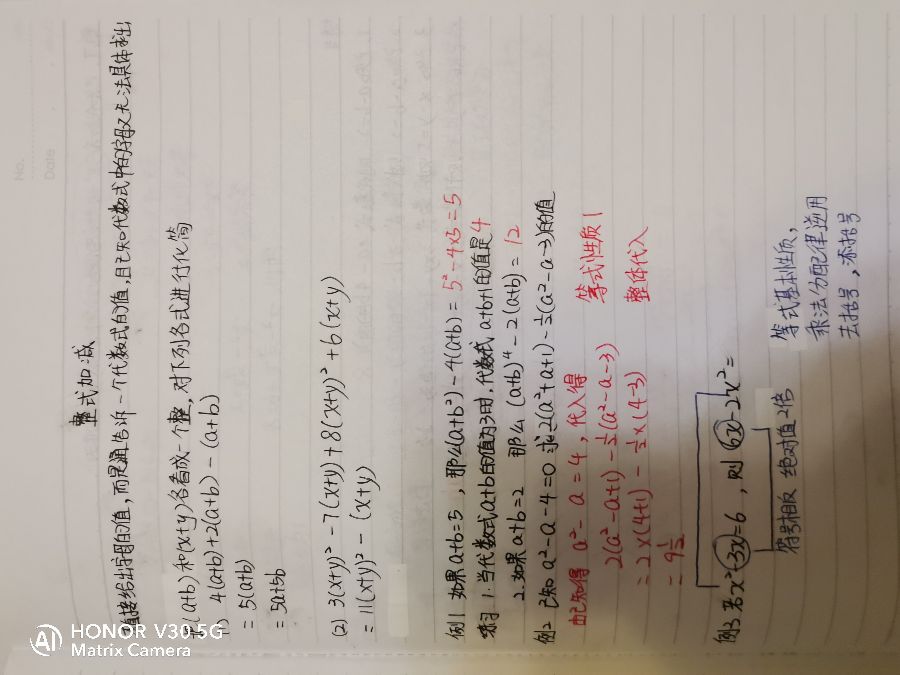 No.
Date
整式加减
直接给出字母的值,而是通告诉一个代数式的值,且已知代数式中的字母又无法具体求出
把(a+b)和(x+y)各看成一个整,对下列各式进行化简
4(a+b)+2(a+b)-(a+b)
=5(a+b)
=5a+5b
(2) 3(x+y)²-7(x+y)+8(x+y)²+6(x+y)
=11(x+y)²-(x+y)
例1 如果a+b=5,那么(a+b²)-4(a+b)=5²-4×5=5
练习1.当代数式a+b的值为3时,代数式a+b+1的值是4
2.如果a+b=2 那么(a+b)⁴-2(a+b)=12
例2 已知a²-a-4=0求2(a²+a+1)-½(a²-a-3)的值
由已知得 a²-a=4,代入得 等式性质1
2(a²-a+1)-½(a²-a-3) 整体代入
=2×(4+1)-½×(4-3)
=9½
例3 若x²-3x=6,则6x-2x²=
符号相反 绝对值2倍
等式基本性质,
乘法分配律逆用
去括号,添括号
HONOR V30 5G
Matrix Camera